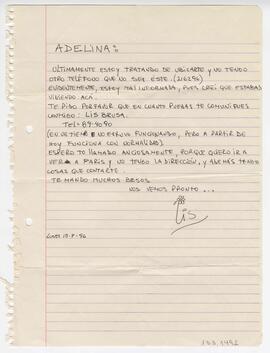 ADELINA:
ULTIMAMENTE ESTOY TRATANDO DE UBICARTE Y NO TENGO
OTRO TELÉFONO QUE NO SEA ESTE. (216296)
EVIDENTEMENTE, ESTOY MAL INFORMADA, PUES CREÍ QUE ESTABAS
VIVIENDO ACÁ.
TE PIDO PORFAVOR QUE EN CUANTO PUEDAS TE COMUNIQUES
CONMIGO: LIS BRUSA.
TEL= 89-9090
NO ESTUVO FUNCIONANDO, PERO A PARTIR DE
HOY FUNCIONA CON NORMALIDAD).
ESPERO TU LLAMADO ANSIOSAMENTE, PORQUE QUIERO IR A
VER A PARÍS Y NO TENGO LA DIRECCIÓN, Y ADEMÁS TENGO
COSAS QUE CONTARTE.
TE MANDO MUCHOS BESOS
NOS VEMOS PRONTO...
Lis